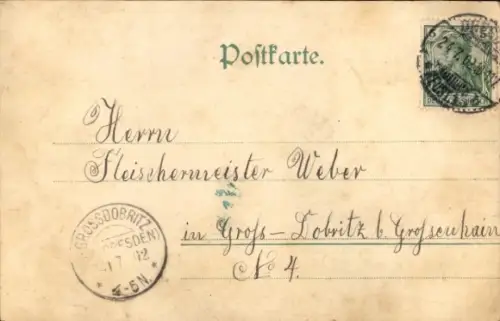 Postkarte.
Herrn
Fleischermeister Weber
in Gross-Dobritz b. Grossenhain
No 4.
GROSSDOBRITZ
DRESDEN)
4-5N.